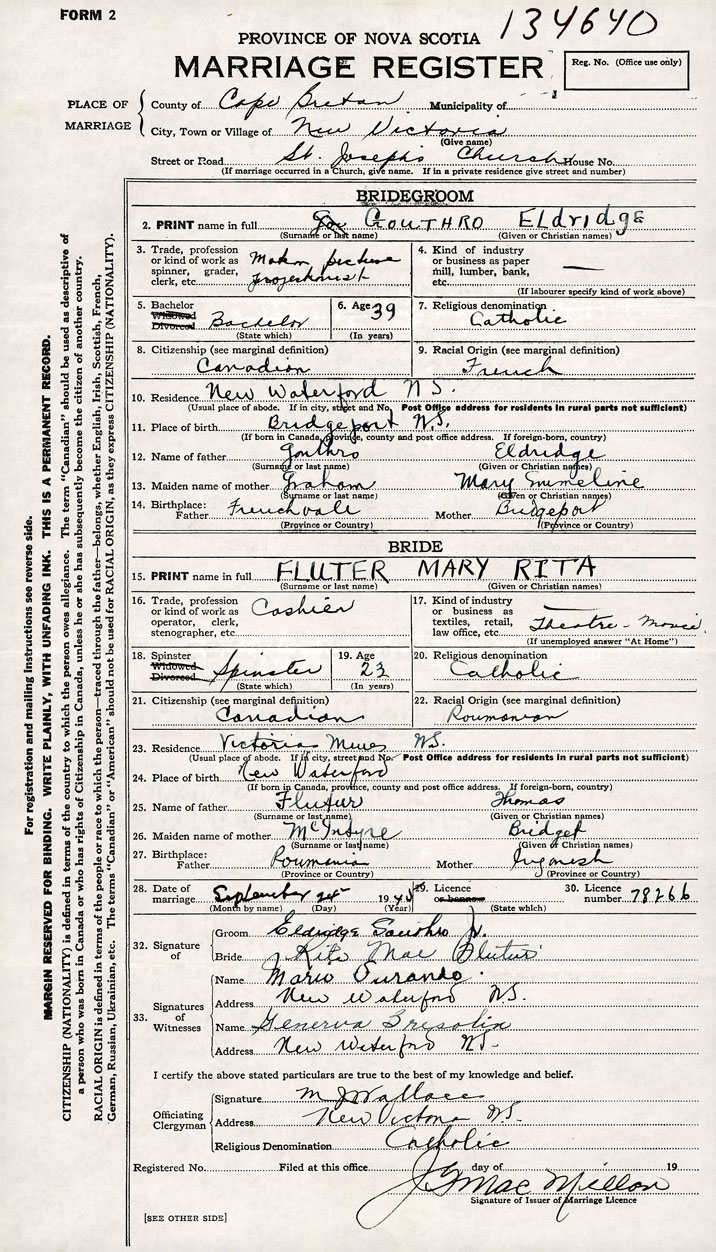 FORM 2
134640
PROVINCE OF NOVA SCOTIA
MARRIAGE REGISTER
Reg. No. (Office use only)
PLACE OF MARRIAGE
County of Cape Breton Municipality of
City, Town or Village of New Victoria
(Give name)
Street or Road St. Joseph's Church House No.
(If marriage occurred in a Church, give name. If in a private residence give street and number)
BRIDEGROOM
2. PRINT name in full GOUTHRO ELDRIDGE
(Surname or last name) (Given or Christian names)
3. Trade, profession or kind of work as spinner, grader, clerk, etc. Motion picture projectionist
4. Kind of industry or business as paper mill, lumber, bank, etc. —
(If labourer specify kind of work above)
5. Bachelor Widowed Divorced Bachelor
(State which)
6. Age 39
(In years)
7. Religious denomination Catholic
8. Citizenship (see marginal definition) Canadian
9. Racial Origin (see marginal definition) French
10. Residence New Waterford N S.
(Usual place of abode. If in city, street and No. Post Office address for residents in rural parts not sufficient)
11. Place of birth Bridgeport N.S.
(If born in Canada, province, county and post office address. If foreign-born, country)
12. Name of father Gouthro Eldridge
(Surname or last name) (Given or Christian names)
13. Maiden name of mother Graham Mary Emmeline
(Surname or last name) (Given or Christian names)
14. Birthplace: Father Frenchvale Mother Bridgeport
(Province or Country) (Province or Country)
BRIDE
15. PRINT name in full FLUTER MARY RITA
(Surname or last name) (Given or Christian names)
16. Trade, profession or kind of work as operator, clerk, stenographer, etc. Cashier
17. Kind of industry or business as textiles, retail, law office, etc. Theatre - Movie
(If unemployed answer "At Home")
18. Spinster Widowed Divorced Spinster
(State which)
19. Age 23
(In years)
20. Religious denomination Catholic
21. Citizenship (see marginal definition) Canadian
22. Racial Origin (see marginal definition) Roumanian
23. Residence Victoria Mines N.S.
(Usual place of abode. If in city, street and No. Post Office address for residents in rural parts not sufficient)
24. Place of birth New Waterford
(If born in Canada, province, county and post office address. If foreign-born, country)
25. Name of father Flutur Thomas
(Surname or last name) (Given or Christian names)
26. Maiden name of mother McIntyre Bridget
(Surname or last name) (Given or Christian names)
27. Birthplace: Father Roumania Mother Ingonish
(Province or Country) (Province or Country)
28. Date of marriage September 24 19
(Month by name) (Day) (Year)
29. Licence or banns
(State which)
30. Licence number 78266
32. Signature of
Groom Eldridge Gouthro Jr.
Bride Rita Mae Flutur
33. Signatures of Witnesses
Name Mario Durando
Address New Waterford N.S.
Name Generva Brisolin
Address New Waterford N.S.
I certify the above stated particulars are true to the best of my knowledge and belief.
Officiating Clergyman
Signature M J Wallace
Address New Victoria N.S.
Religious Denomination Catholic
Registered No. Filed at this office day of 19
MacMillan
Signature of Issuer of Marriage Licence
[SEE OTHER SIDE]
For registration and mailing instructions see reverse side.
MARGIN RESERVED FOR BINDING. WRITE PLAINLY, WITH UNFADING INK. THIS IS A PERMANENT RECORD.
CITIZENSHIP (NATIONALITY) is defined in terms of the country to which the person owes allegiance. The term "Canadian" should be used as descriptive of
a person who was born in Canada or who has rights of Citizenship in Canada, unless he or she has subsequently become the citizen of another country.
RACIAL ORIGIN is defined in terms of the people or race to which the person—traced through the father—belongs, whether English, Irish, Scottish, French,
German, Russian, Ukrainian, etc. The terms "Canadian" or "American" should not be used for RACIAL ORIGIN, as they express CITIZENSHIP (NATIONALITY).